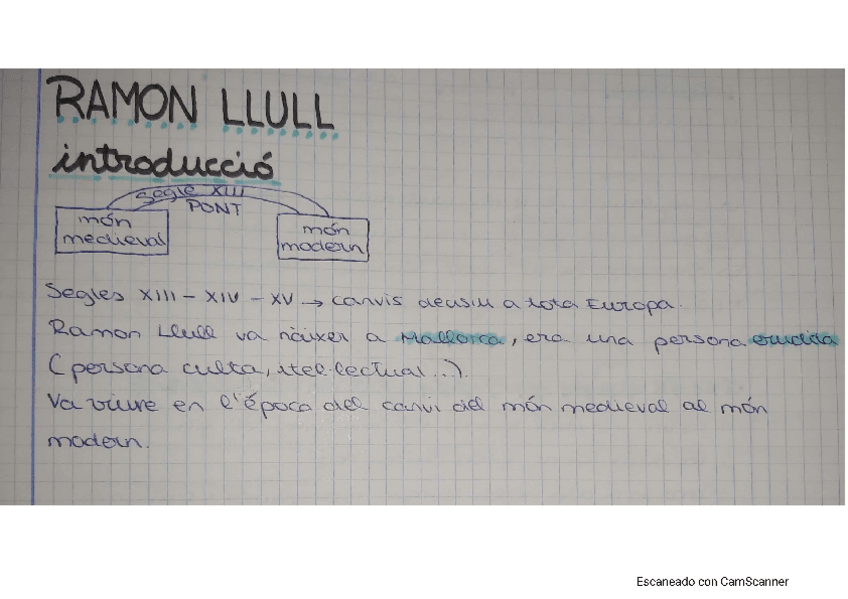 RAMON LLULL
introducció
Segle XIII
PONT
món medieval
món modern
Segles XIII - XIV - XV → canvis decisiu a tota Europa.
Ramon Llull va nàixer a Mallorca, era una persona erudida
(persona culta, itel·lectual...).
Va viure en l'época del canvi del món medieval al món
modern.
Escaneado con CamScanner